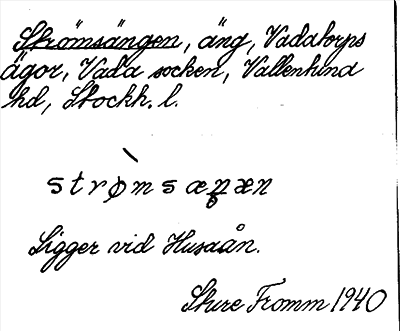 Strömsängen, äng, Vadatorps
ägor, Vada socken, Vallentuna
hd, Stockh. l.
strø̀msæŋæn
Ligger vid Husaån.
Sture Fromm 1940